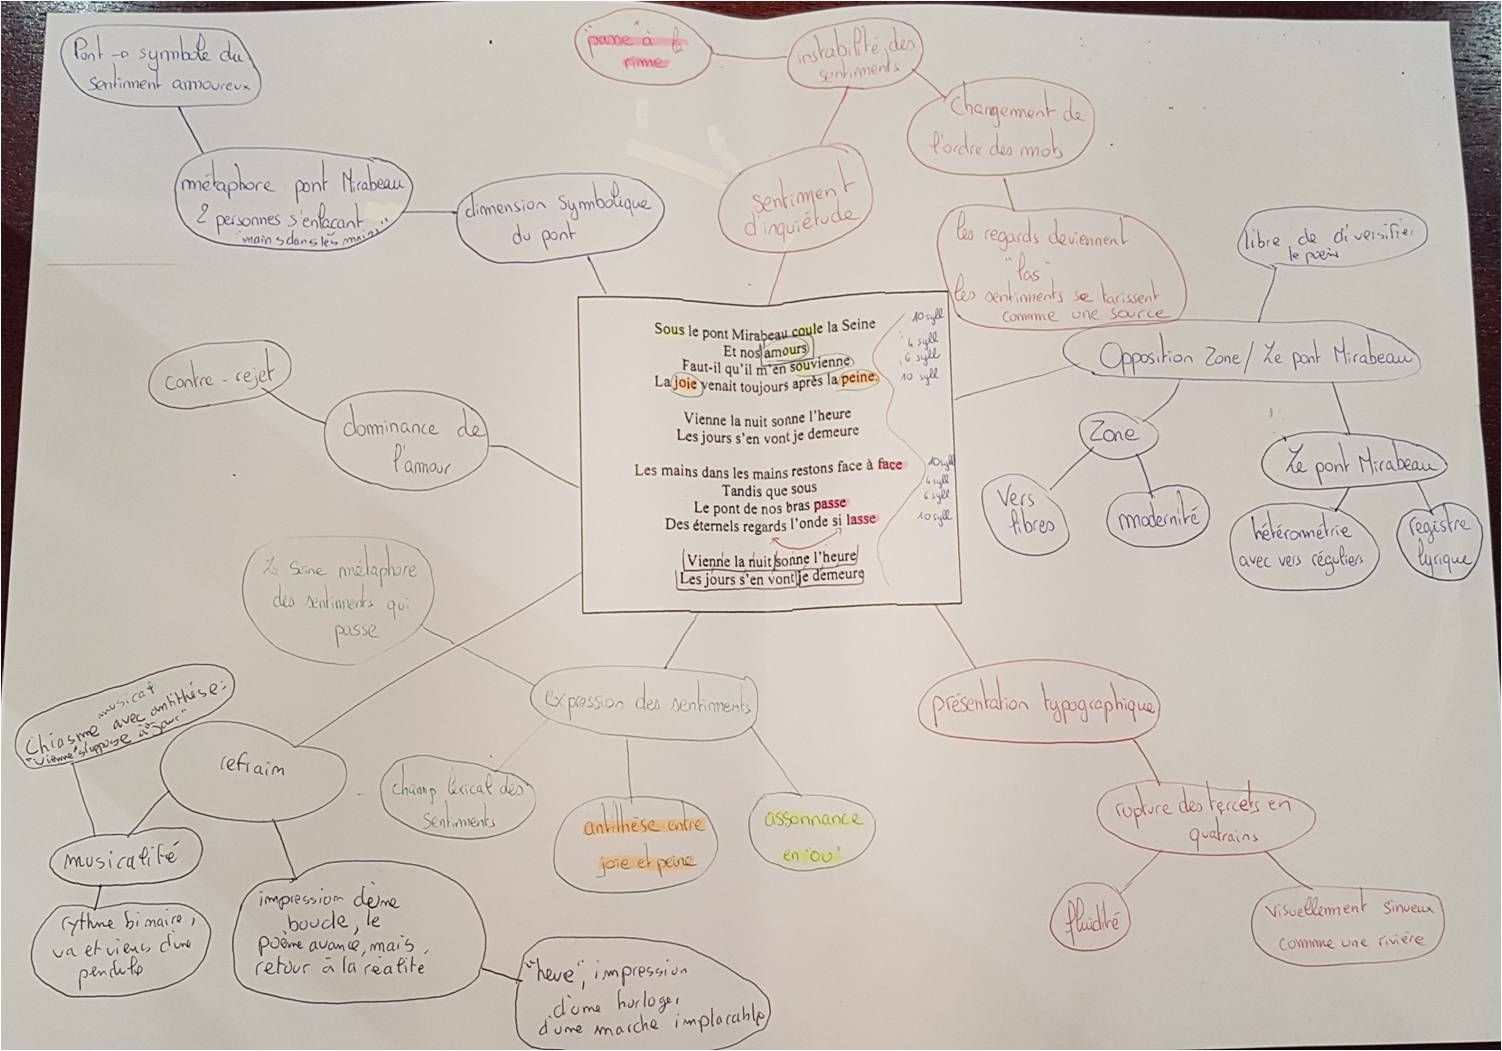 Pont → symbole du
sentiment amoureux
métaphore pont Mirabeau
2 personnes s'enlaçant
"mains dans les mains"
dimension symbolique
du pont
passe à la
rime
instabilité des
sentiments
Changement de
l'ordre des mots
sentiment
d'inquiétude
les regards deviennent
"las"
les sentiments se tarissent
comme une source
libre de diversifier
le poème
Opposition Zone/ Le pont Mirabeau
Zone
Vers
libres
modernité
Le pont Mirabeau
hétérométrie
avec vers réguliers
registre
lyrique
contre-rejet
dominance de
l'amour
Sous le pont Mirabeau coule la Seine
Et nos amours
Faut-il qu'il m'en souvienne
La joie venait toujours après la peine.
10 syll
4 syll
6 syll
10 syll
Vienne la nuit sonne l'heure
Les jours s'en vont je demeure
Les mains dans les mains restons face à face
Tandis que sous
Le pont de nos bras passe
Des éternels regards l'onde si lasse
10 syll
4 syll
6 syll
10 syll
Vienne la nuit sonne l'heure
Les jours s'en vont je demeure
La Seine métaphore
des sentiments qui
passe
expression des sentiments
champ lexical des
sentiments
antithèse entre
joie et peine
assonnance
en "ou"
présentation typographique
rupture des tercets en
quatrains
fluidité
visuellement sinueux
comme une rivière
Chiasme avec antithèse:
refrain
musicalité
rythme binaire,
va et viens d'une
pendule
impression d'une
boucle, le
poème avance, mais
retour à la réalité
"heure", impression
d'une horloge,
d'une marche implacable